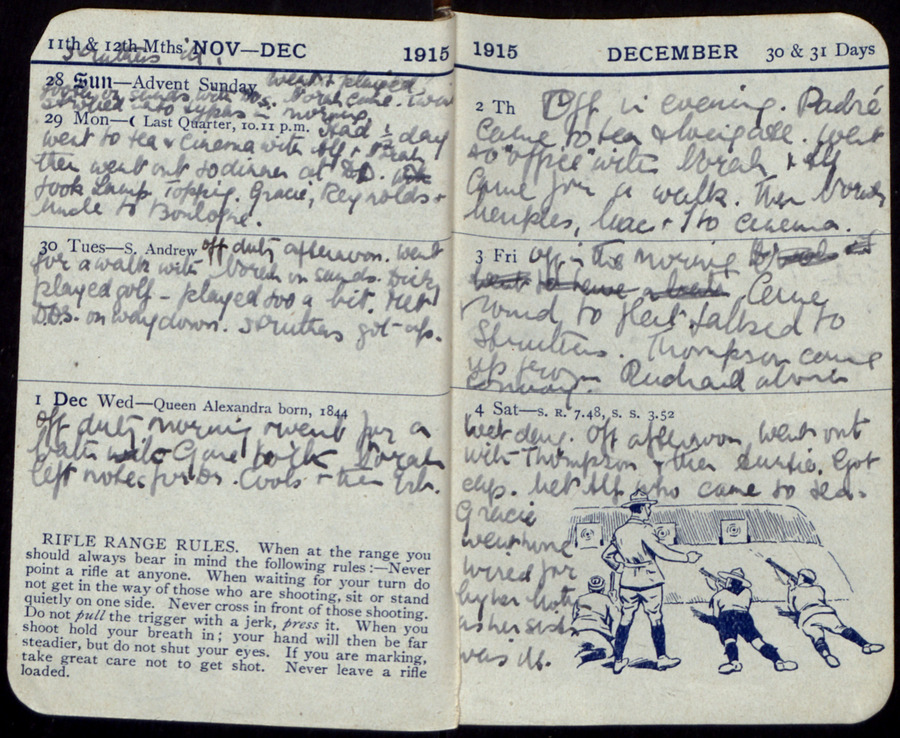 11th & 12th Mths NOV—DEC 1915
Struthers ill.
28 Sun—Advent Sunday Went & played
on sands with Drs. Norah came.
in morning.
29 Mon—☾ Last Quarter, 10.11 p.m. Had ½ day
went to tea & Cinema with Alf & Norah
then went out to dinner at
took Lamp Topping. Gracie, Reynolds &
Uncle to Boulogne.
30 Tues—S. Andrew off duty afternoon. Went
for a walk with Norah on sands. Dick
played golf - played too a bit. Met
D.Ds. on way down. Struthers got up.
1 Dec Wed—Queen Alexandra born, 1844
Off duty morning & went for a
walk with Norah
left notes for Drs. Cools & then
RIFLE RANGE RULES. When at the range you
should always bear in mind the following rules :—Never
point a rifle at anyone. When waiting for your turn do
not get in the way of those who are shooting, sit or stand
quietly on one side. Never cross in front of those shooting.
Do not pull the trigger with a jerk, press it. When you
shoot hold your breath in; your hand will then be far
steadier, but do not shut your eyes. If you are marking,
take great care not to get shot. Never leave a rifle
loaded.
1915 DECEMBER 30 & 31 Days
2 Th Off in evening. Padré
came to tea & Went
to "office" with Norah & Alf
came for a walk. Then Norah
& I to cinema.
3 Fri off in the morning
Came
round to flat, talked to
Struthers. Thompson came
up from
4 Sat—S. R. 7.48, S. S. 3.52
Wet day. Off afternoon, went out
with Thompson & then Auntie. Got
cap. Met Alf who came to tea.
Gracie
went home
wired for
by her Mother
as her sister
was ill.